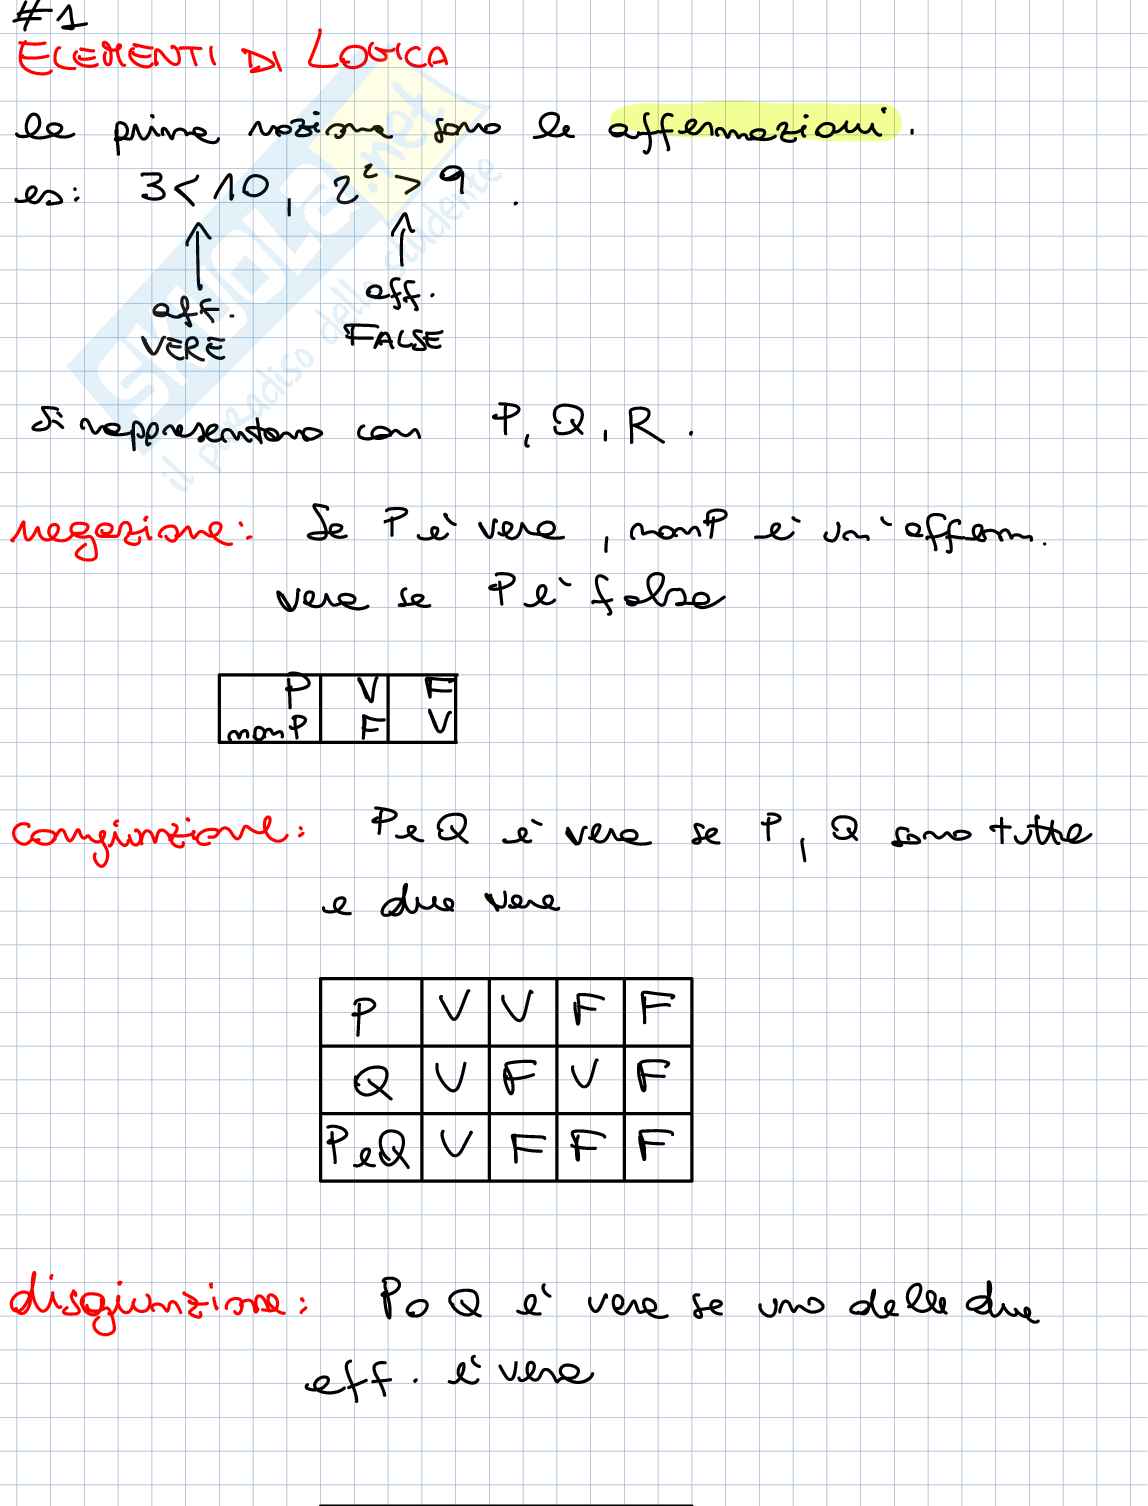 #1
ELEMENTI DI LOGICA
la prima nozione sono le affermazioni.
es: 3 < 10, 2² > 9.
aff. aff.
VERA FALSA
Si rappresentano con P, Q, R.
negazione: Se P è vera, non P è un'afferm.
vera se P è falsa
P V F
non P F V
congiunzione: P e Q è vera se P, Q sono tutte
e due vere
P V V F F
Q V F V F
P e Q V F F F
disgiunzione: P o Q è vera se una delle due
aff. è vera
SKUOLA.net
il paradiso dello studente